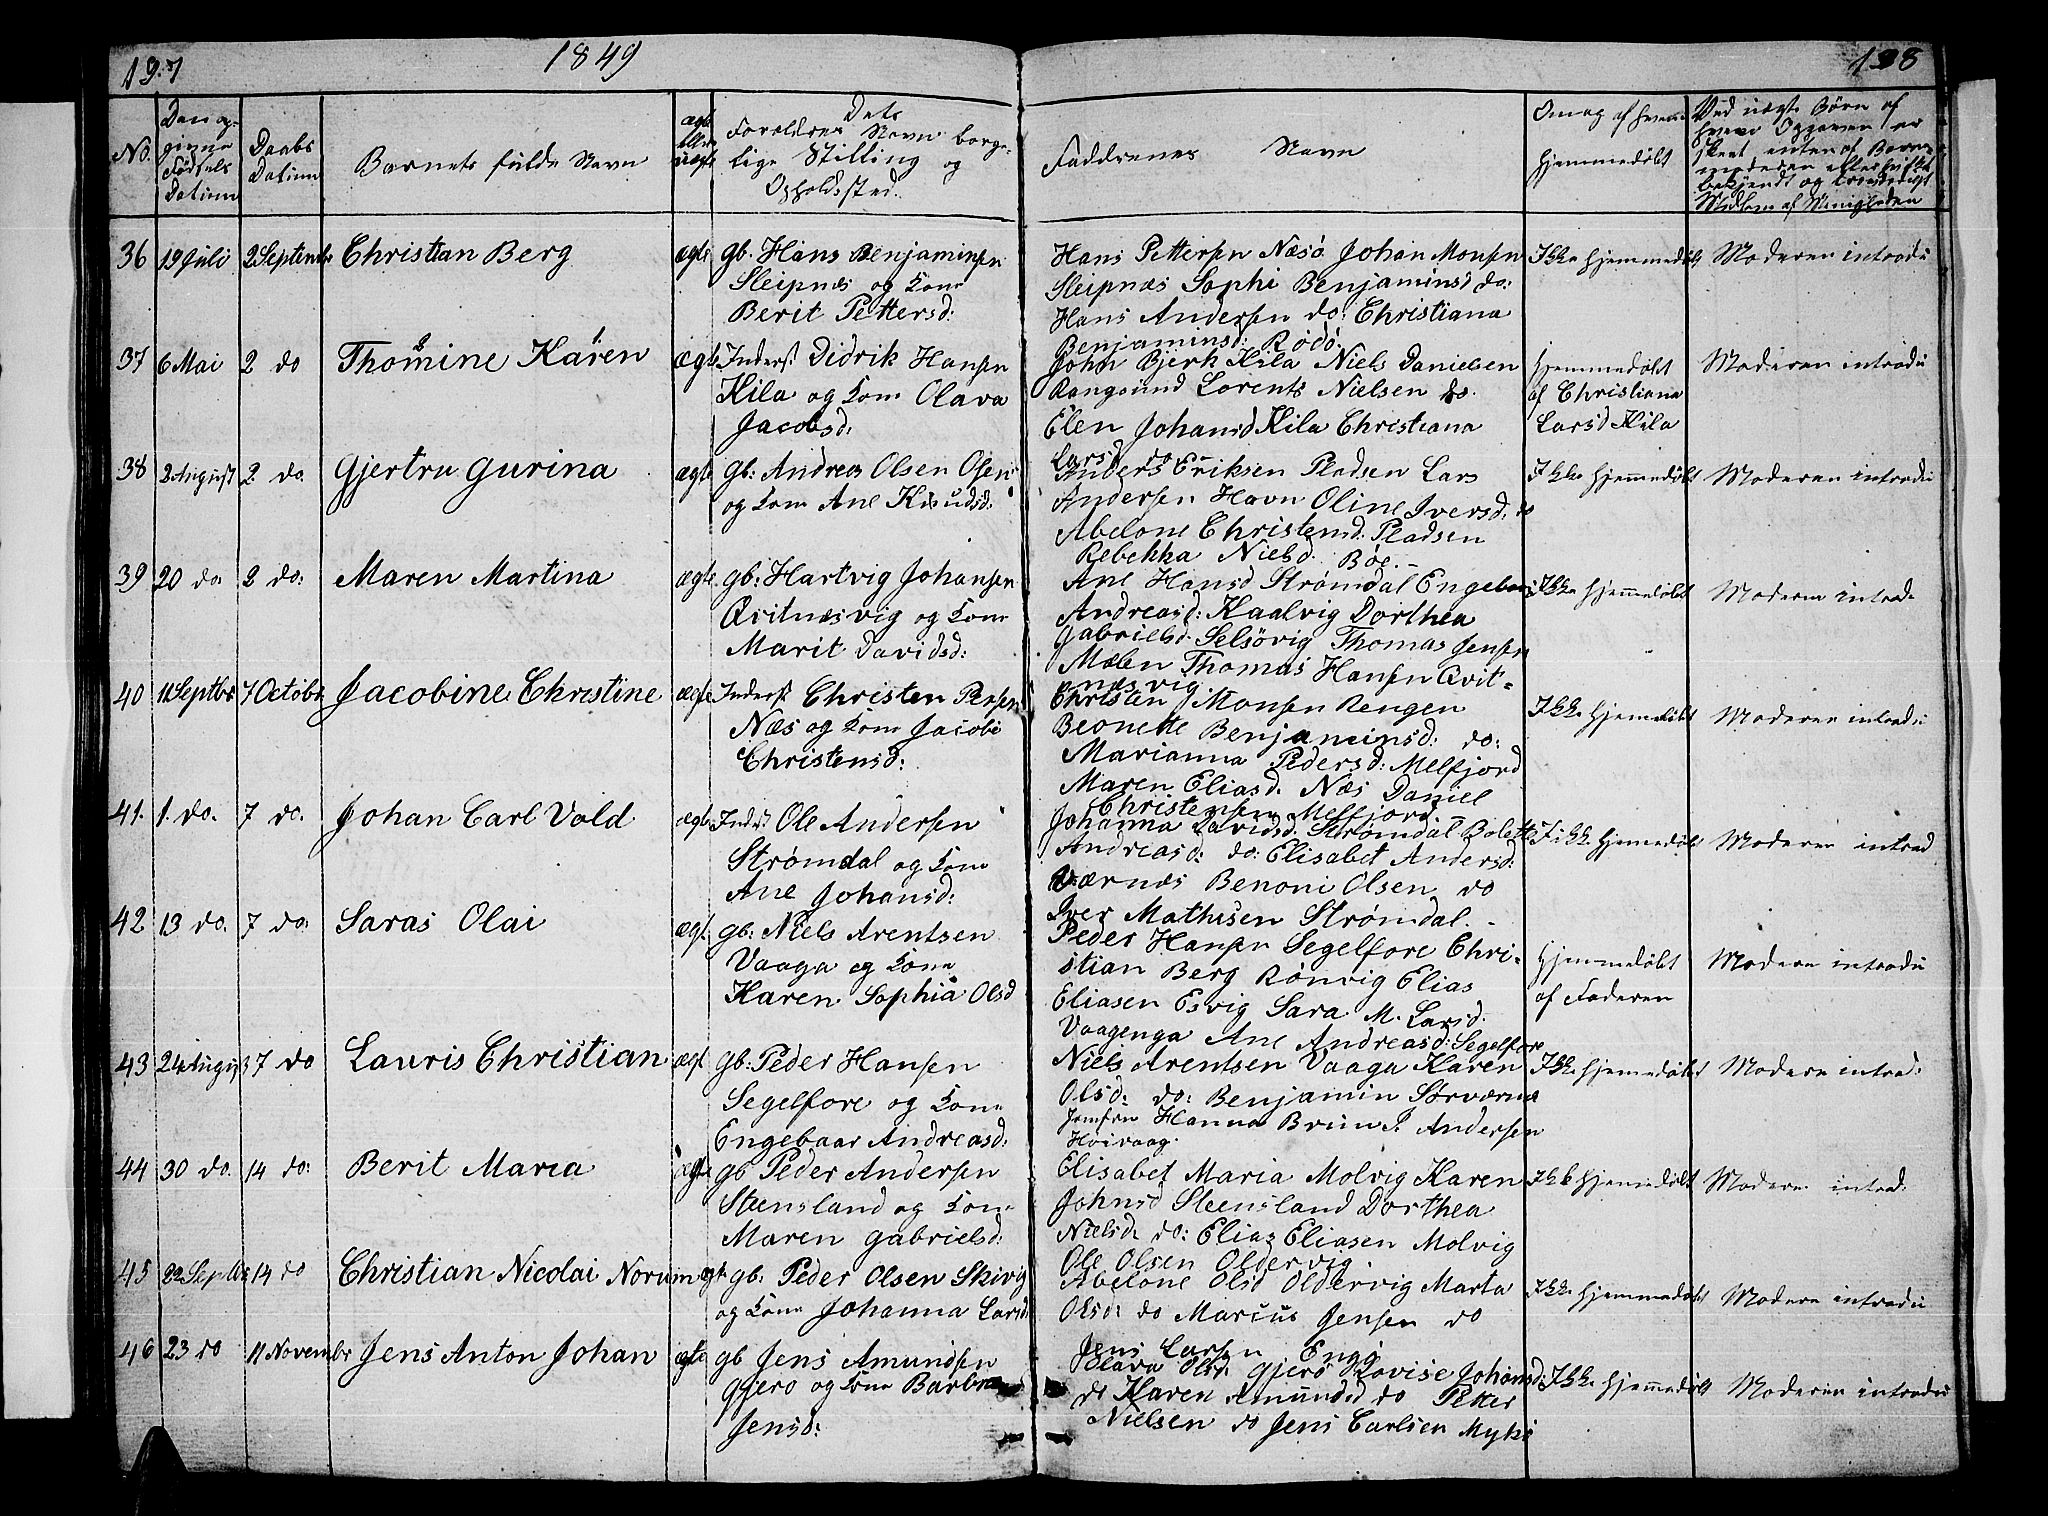 137
1849
138
No.
Den op-
givne
Fødsels
Datum
Daabs
Datum
Barnets fulde Navn
ægte
eller
uægte
Dets
Forældres Navn borge-
lige Stilling og
Opholdssted.
Faddrenes Navn
Om og af hvem
hjemmedøbt
Ved uægte Børn af
hvem Opgaven er
skeet enten af Barne-
moderen eller hvis
bekjendt og troværdigt
Medlem af Menigheden
36 19 Juli 2 Septembr Christian Berg ægte gb. Hans Benjaminsen
Sleipnæs og Kone
Berit Pettersd:
Hans Pettersen Næsö Johan Monsen
Sleipnæs Sophi Benjaminsd do:
Hans Andersen do: Christiana
Benjaminsd: Rödö:
Ikke hjemmedøbt Moderen introdu
37 6 Mai 2 do Thomine Karen ægte Inderst Didrik Hansen
Kila og Kone Olava
Jacobsd:
John Bjerk Kila Niels Danielsen
Rangsund Lorents Nielsen do.
Elen Johansd Kila Christiana
Larsd do
hjemmedøbt
af Christiana
Larsd Kila
Moderen introdu
38 2 August 2 do Gjertru Gurina ægte gb: Andreas Olsen Osen
og Kone Ane Knudsd:
Anders Eriksen Pladsen Lars
Andersen Havn Oline Iversd: do
Abelone Christensd: Pladsen
Rebekka Nielsd: Böe. -
Ikke hjemmedøbt Moderen introdu
39 20 do. 2 do: Maren Martina ægte. gb: Hartvig Johansen
Qvitnæsvig og Kone
Marit Davidsd:
Ane Hansd Strømdal Engebor
Andreasd: Kaalvig Dorthea
Gabrielsd. Selsövig Thomas Jensen
Mælen Thomas Hansen Qvit=
næsvig.
Ikke hjemmedøbt Moderen introd.
40 11 Septbr 7 Octobr Jacobine Christine ægte Inderst Christen Pensen
Næs og Kone Jacobi
Christensd:
Christen Monsen Rengen
Beonette Benjaminsd: do:
Marianna Pedersd: Melfjord
Maren Eliasd. Næs Daniel
Christensen Melfjord. -
Ikke hjemmedøbt Moderen introdu
41. 1. do. 7 do. Johan Carl Vold ægte Inderst Ole Andersen
Strømdal og Kone
Ane Johansd:
Johanna Davidsd. Strømdal Bolette
Andreasd: do: Elisabet Andersd:
Værnæs Benoni Olsen do
Iver Mathisen Strømdal. -
Ikke hjemmedøbt Moderen introd
42 13 do. 7 do: Saras Olai ægt. gb: Niels Arentsen
Vaaga og Kone
Karen Sophia Olsd
Peder Hansen Segelfore Chri-
stian Berg Rönvig Elias
Eliasen Esvig Sara M. Larsd.
Vaagenga Ane Andreasd: Segelfore
hjemmedøbt
af Faderen
Moderen introdu
43 24 August 7 do Lauris Christian ægt gb: Peder Hansen
Segelfore og Kone
Engebaar Andreasd:
Niels Arentsen Vaaga Karen
Olsd: do: Benjamin Störværnes
Jomfru Hanna Brun P. Andersen
Höivaag.
Ikke hjemmedøbt Moderen introd:
44 30 do. 14 do: Berit Maria ægte gb Peder Andersen
Steensland og Kone
Maren Gabrielsd:
Elisabet Maria Molvig Karen
Johnsd Steensland Dorthea
Nielsd. do: Elias Eliasen Molvig
Ole Olsen Oldervig.
Ikke hjemmedøbt Moderen introd.
45 22 Septbr 14 do Christian Nicolai Norum ægt gb: Peder Olsen Skivig
og Kone Johanna Larsd:
Abelone Olsd Oldervig Marta
Olsd: do Marcus Jensen do
Jens Larsen Engg
Ikke hjemmedøbt Moderen introdu
46 23 do 11 Novembr Jens Anton Johan ægte gb Jens Amundsen
Gjerö og Kone Barbra
Jensd:
Olava Olsd. Gjerö Lovise Johansd:
do Karen Amundsd do Petter
Nielsen do Jens Carlsen Myki
Ikke hjemmedøbt Moderen introdu